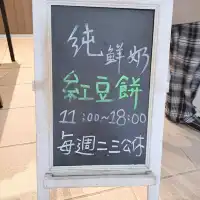 純鮮奶
紅豆餅
11:00~18:00
每週二三公休